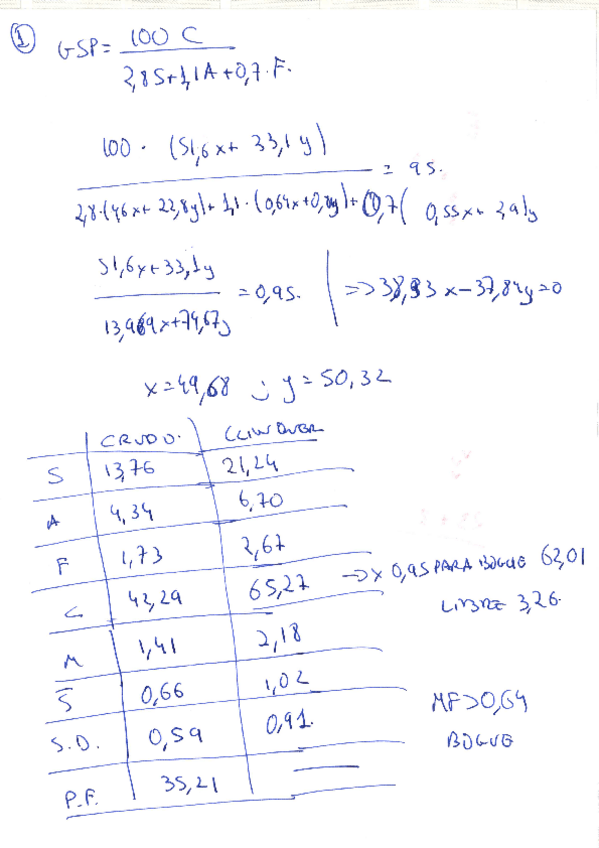 ① GSP = 100 C
2,8S+1,1A+0,7.F.
100 . (51,6x+ 33,1 y)
= 95.
2,8.(4,6x+ 22,8y)+ 1,1.(0,64x+0,9y)+0,7( 0,55x+ 2,9)y
51,6x+33,1y
= 0,95. | => 38,33x-37,84y=0
13,969x+74,67y
x=49,68 ; y=50,32
CRUDO. CLINQUER
S 13,76 21,24
A 4,34 6,70
F 1,73 2,67
C 42,29 65,27 -> x 0,95 PARA BOGUE 62,01
LIBRE 3,26.
M 1,41 2,18
S 0,66 1,02
MF>0,64
S.D. 0,59 0,91.
BOGUE
P.F. 35,21